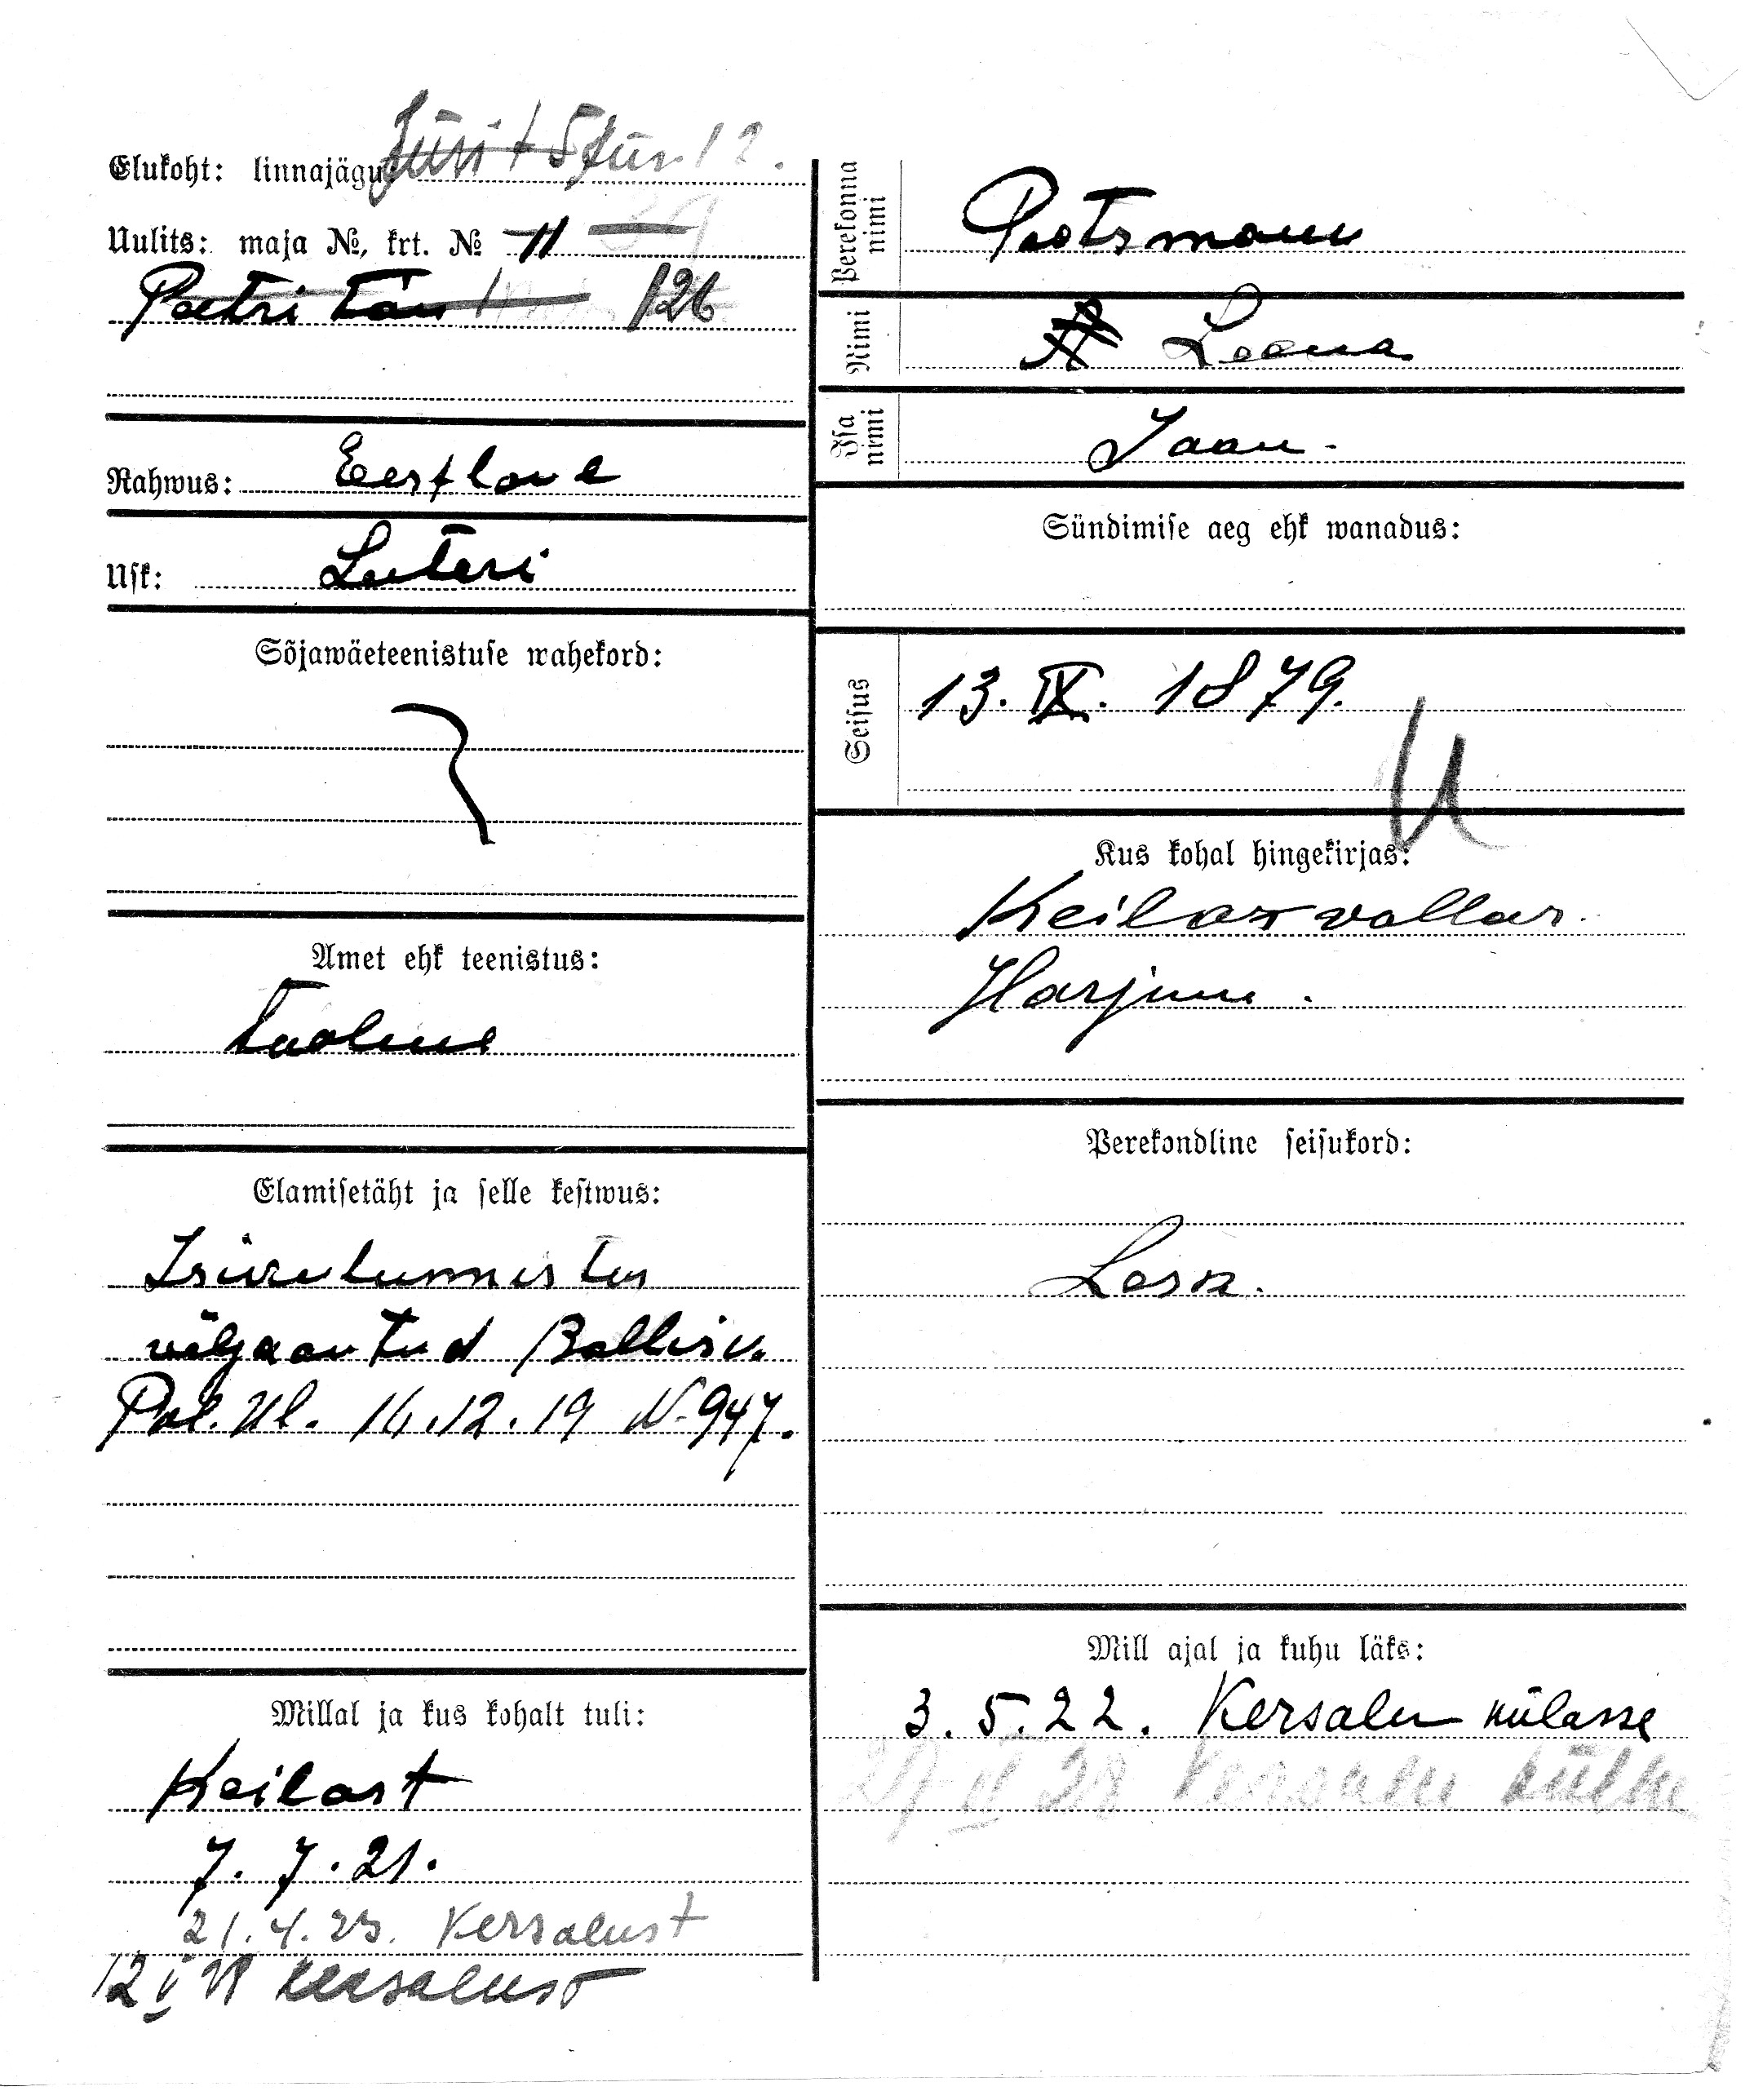 Elukoht: linnajägu: Jüri t 12.
Uulits: maja №, krt. № 11
Petri tän 126
Rahwus: Eestlane
Usk: Luteri
Sõjawäeteenistuse wahekord:
Amet ehk teenistus:
Tööline
Elamisetäht ja selle kestwus:
Isikutunnistus
wäljaantud Baltisv.
Pol. Ül. 16.12.19 N-947.
Millal ja kus kohalt tuli:
Keilast
7. 7. 21.
21.4.23. Kersalust
12 V Kersalust
Perekonna nimi Pootsmann
Nimi Leena
Isa nimi Jaan.
Sündimise aeg ehk wanadus:
Seisus 13. IX. 1879.
Kus kohal hingekirjas:
Keila vallas
Harjum.
Perekondline seisukord:
Lesk.
Mill ajal ja kuhu läks:
3. 5. 22. Kersalu külasse
28 Kersalu külla